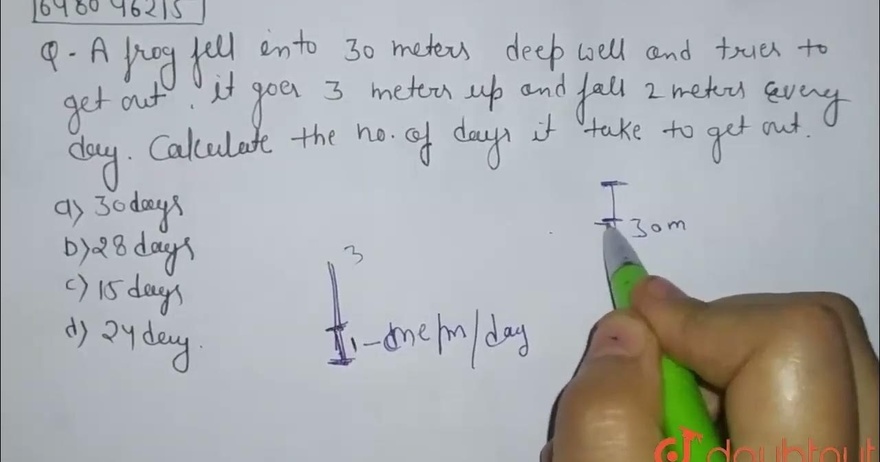 Q - A frog fell into 30 meters deep well and tries to
get out. it goes 3 meters up and fall 2 meters every
day. Calculate the no. of days it take to get out.
a) 30 days
b) 28 days
c) 15 days
d) 24 day.
30m
3
1 - one/m/day
doubtnut